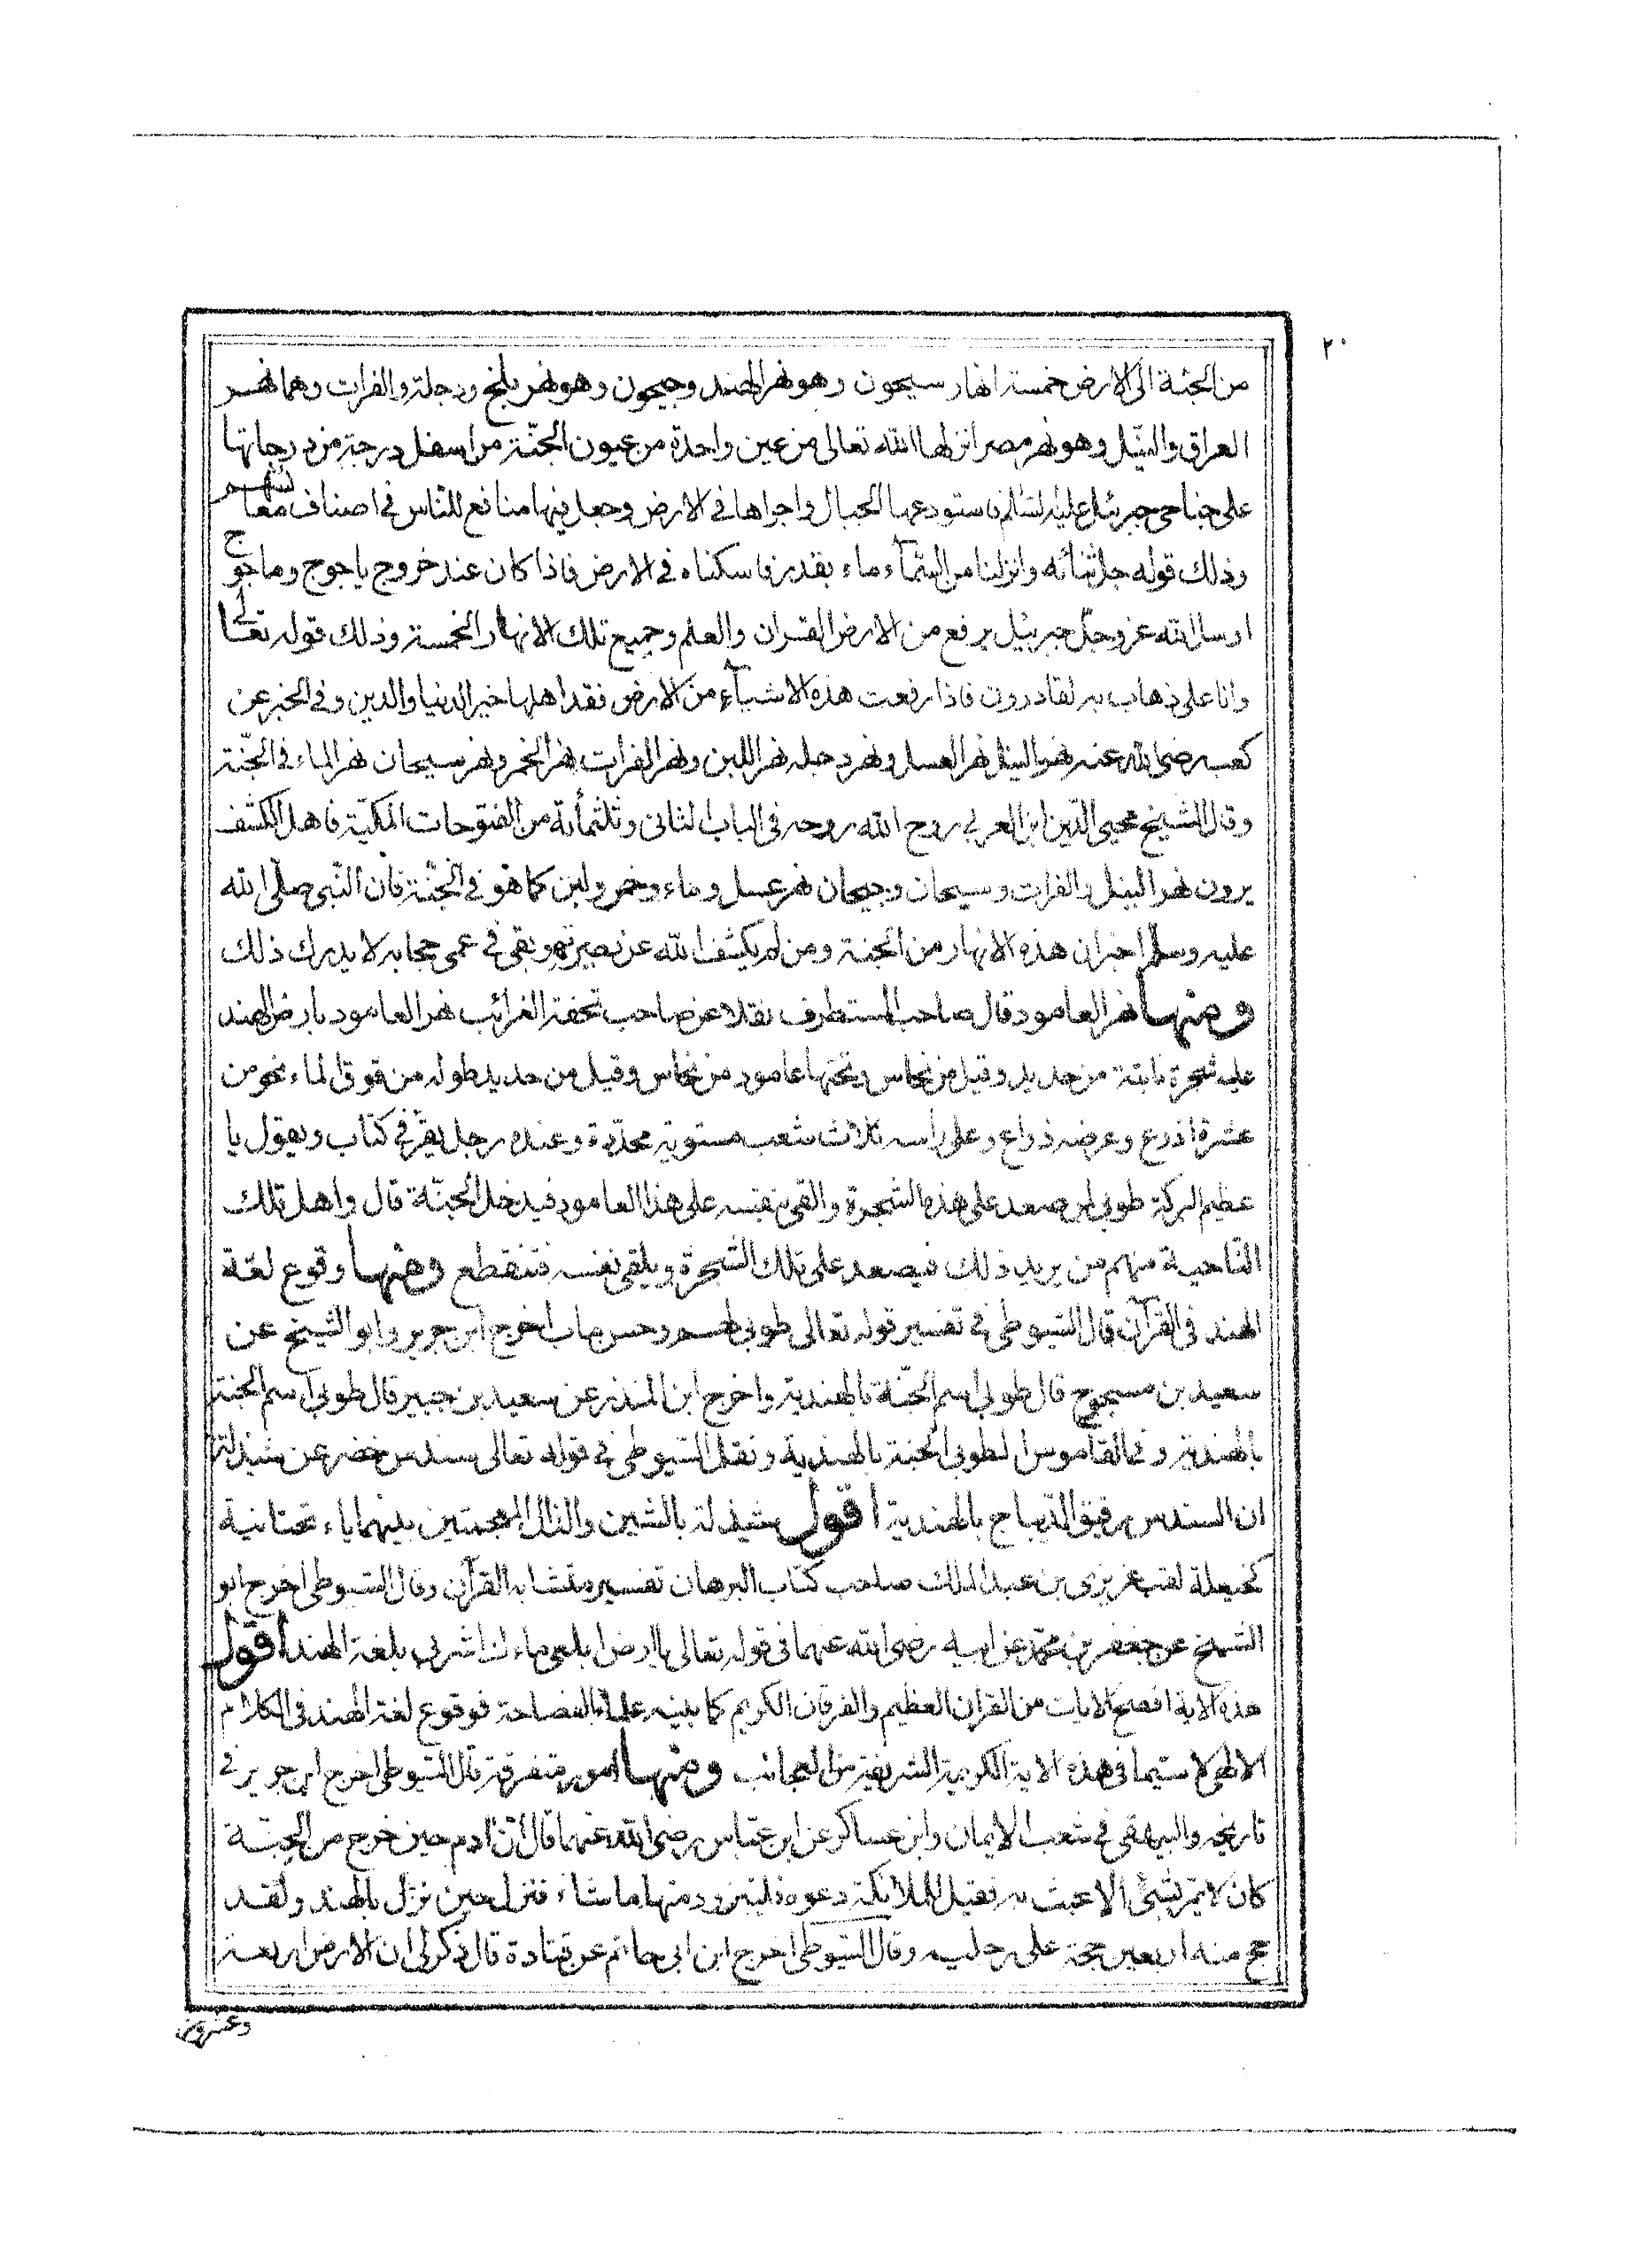 ٢٠
من الجنة الى الارض خمسة انهار سيحون وهو نهر الهند وجيحون وهو نهر بلخ ودجلة والفرات وهما نهـــر
العراق والنيل وهو نهر مصر انزلها الله تعالى من عين واحدة من عيون الجنّة من اسفل درجة من درجاتها
على جناحى جبرئيل عليه السّلام فاستودعها الجبال واجراها فى الارض وجعل فيها منافع للنّاس فى اصناف معائشهم
وذلك قوله جل ثنائه وانزلنا من السّمآء ماء بقدر فاسكناه فى الارض فاذا كان عند خروج ياجوج وماجوج
ارسل الله عز وجلّ جبرئيل يرفع من الارض القران والعلم وجميع تلك الانهار الخمسة وذلك قوله تعالى
وانا على ذهاب به لقادرون فاذا رفعت هذه الاشيآء من الارض فقد اهلها خير الدنيا والدين وفى الخبر عن
كعب رضى الله عنه نهر النيل نهر العسل ونهر دجلة نهر اللبن ونهر الفرات نهر الخمر ونهر سيحان نهر الماء فى الجّنة
وقال الشيخ محيى الدّين ابن العربي روح الله روحه فى الباب الثانى وثلثمأئة من الفتوحات المكيّة فاهل الكشف
يرون نهر النيل والفرات وسيحان وجيحان نهر عسل وماء وخمر ولبن كما هو فى الجّنة فان النّبى صلّى الله
عليه وسلم اخبر ان هذه الانهار من الجنة ومن لم يكشف الله عن بصيرته وبقى فى عمى حجابه لا يدرك ذلك
ومنها نهر العامود قال صاحب المستطرف نقلا عن صاحب تحفة الغرائب نهر العامود بارض الهند
عليه شجرة نابتة من حديد وقيل من نحاس وتحتها عامود من نحاس وقيل من حديد طوله من فوق الماء نحو من
عشرة اذرع وعرضه ذراع وعلى رأسه ثلاث شعب مستوية محدّدة وعنده رجل يقرّ فى كتاب ويقول يا
عظيم البركة طوبى لمن صعد على هذه الشجرة والقى بنفسه على هذا العامود فيدخل الجنّة قال واهل تلك
النّاحية منهم من يريد ذلك فيصعد على تلك الشجرة ويلقى نفسه فتنقطع ومنها وقوع لغة
الهند فى القرآن قال السّيوطى فى تفسير قوله تعالى طوبى لهم وحسن ماب اخرج ابن جرير وابو الشيخ عن
سعيد بن مسجوح قال طوبى اسم الجنّة بالهندية واخرج ابن المنذر عن سعيد بن جبير قال طوبى اسم الجنة
بالهندية وفى القاموس الطوبى الجنة بالهندية ونقل السّيوطى فى قوله تعالى سندس خضر عن شيذلة
ان السندس رقيق الدّيباج بالهندية اقول شيذلة بالشين والذال المعجمتين بينهما ياء تحتانية
كخيعلة لقب عزيزى بن عبد الملك صاحب كتاب البرهان تفسير متشابه القرآن وقال السّيوطى اخرج ابو
الشيخ عن جعفر بن محمّد عن ابيه رضى الله عنهما فى قوله تعالى يا ارض ابلعى ماءك اشربى بلغة الهند اقول
هذه الاية افصح الايات من القران العظيم والفرقان الكريم كما بينه علماء الفصاحة فوقوع لغة الهند فى الكلام
الالهى لا سيّما فى هذه الاية الكريمة الشريفة من العجائب ومنها امور متفرقة قال السّيوطى اخرج ابن جرير فى
تاريخه والبيهقى فى شعب الايمان وابن عساكر عن ابن عبّاس رضى الله عنهما قال انّ ادم حين خرج من الجنّة
كان لا يمرّ بشئ الا عبث به فقيل للملائكة دعوه فليتزود منها ما شاء فنزل حين نزل بالهند ولقد
حج منه اربعين حجة على رجليه وقال السّيوطى اخرج ابن ابى حاتم عن قتادة قال ذكر لى ان الارض اربعة
وعشرون